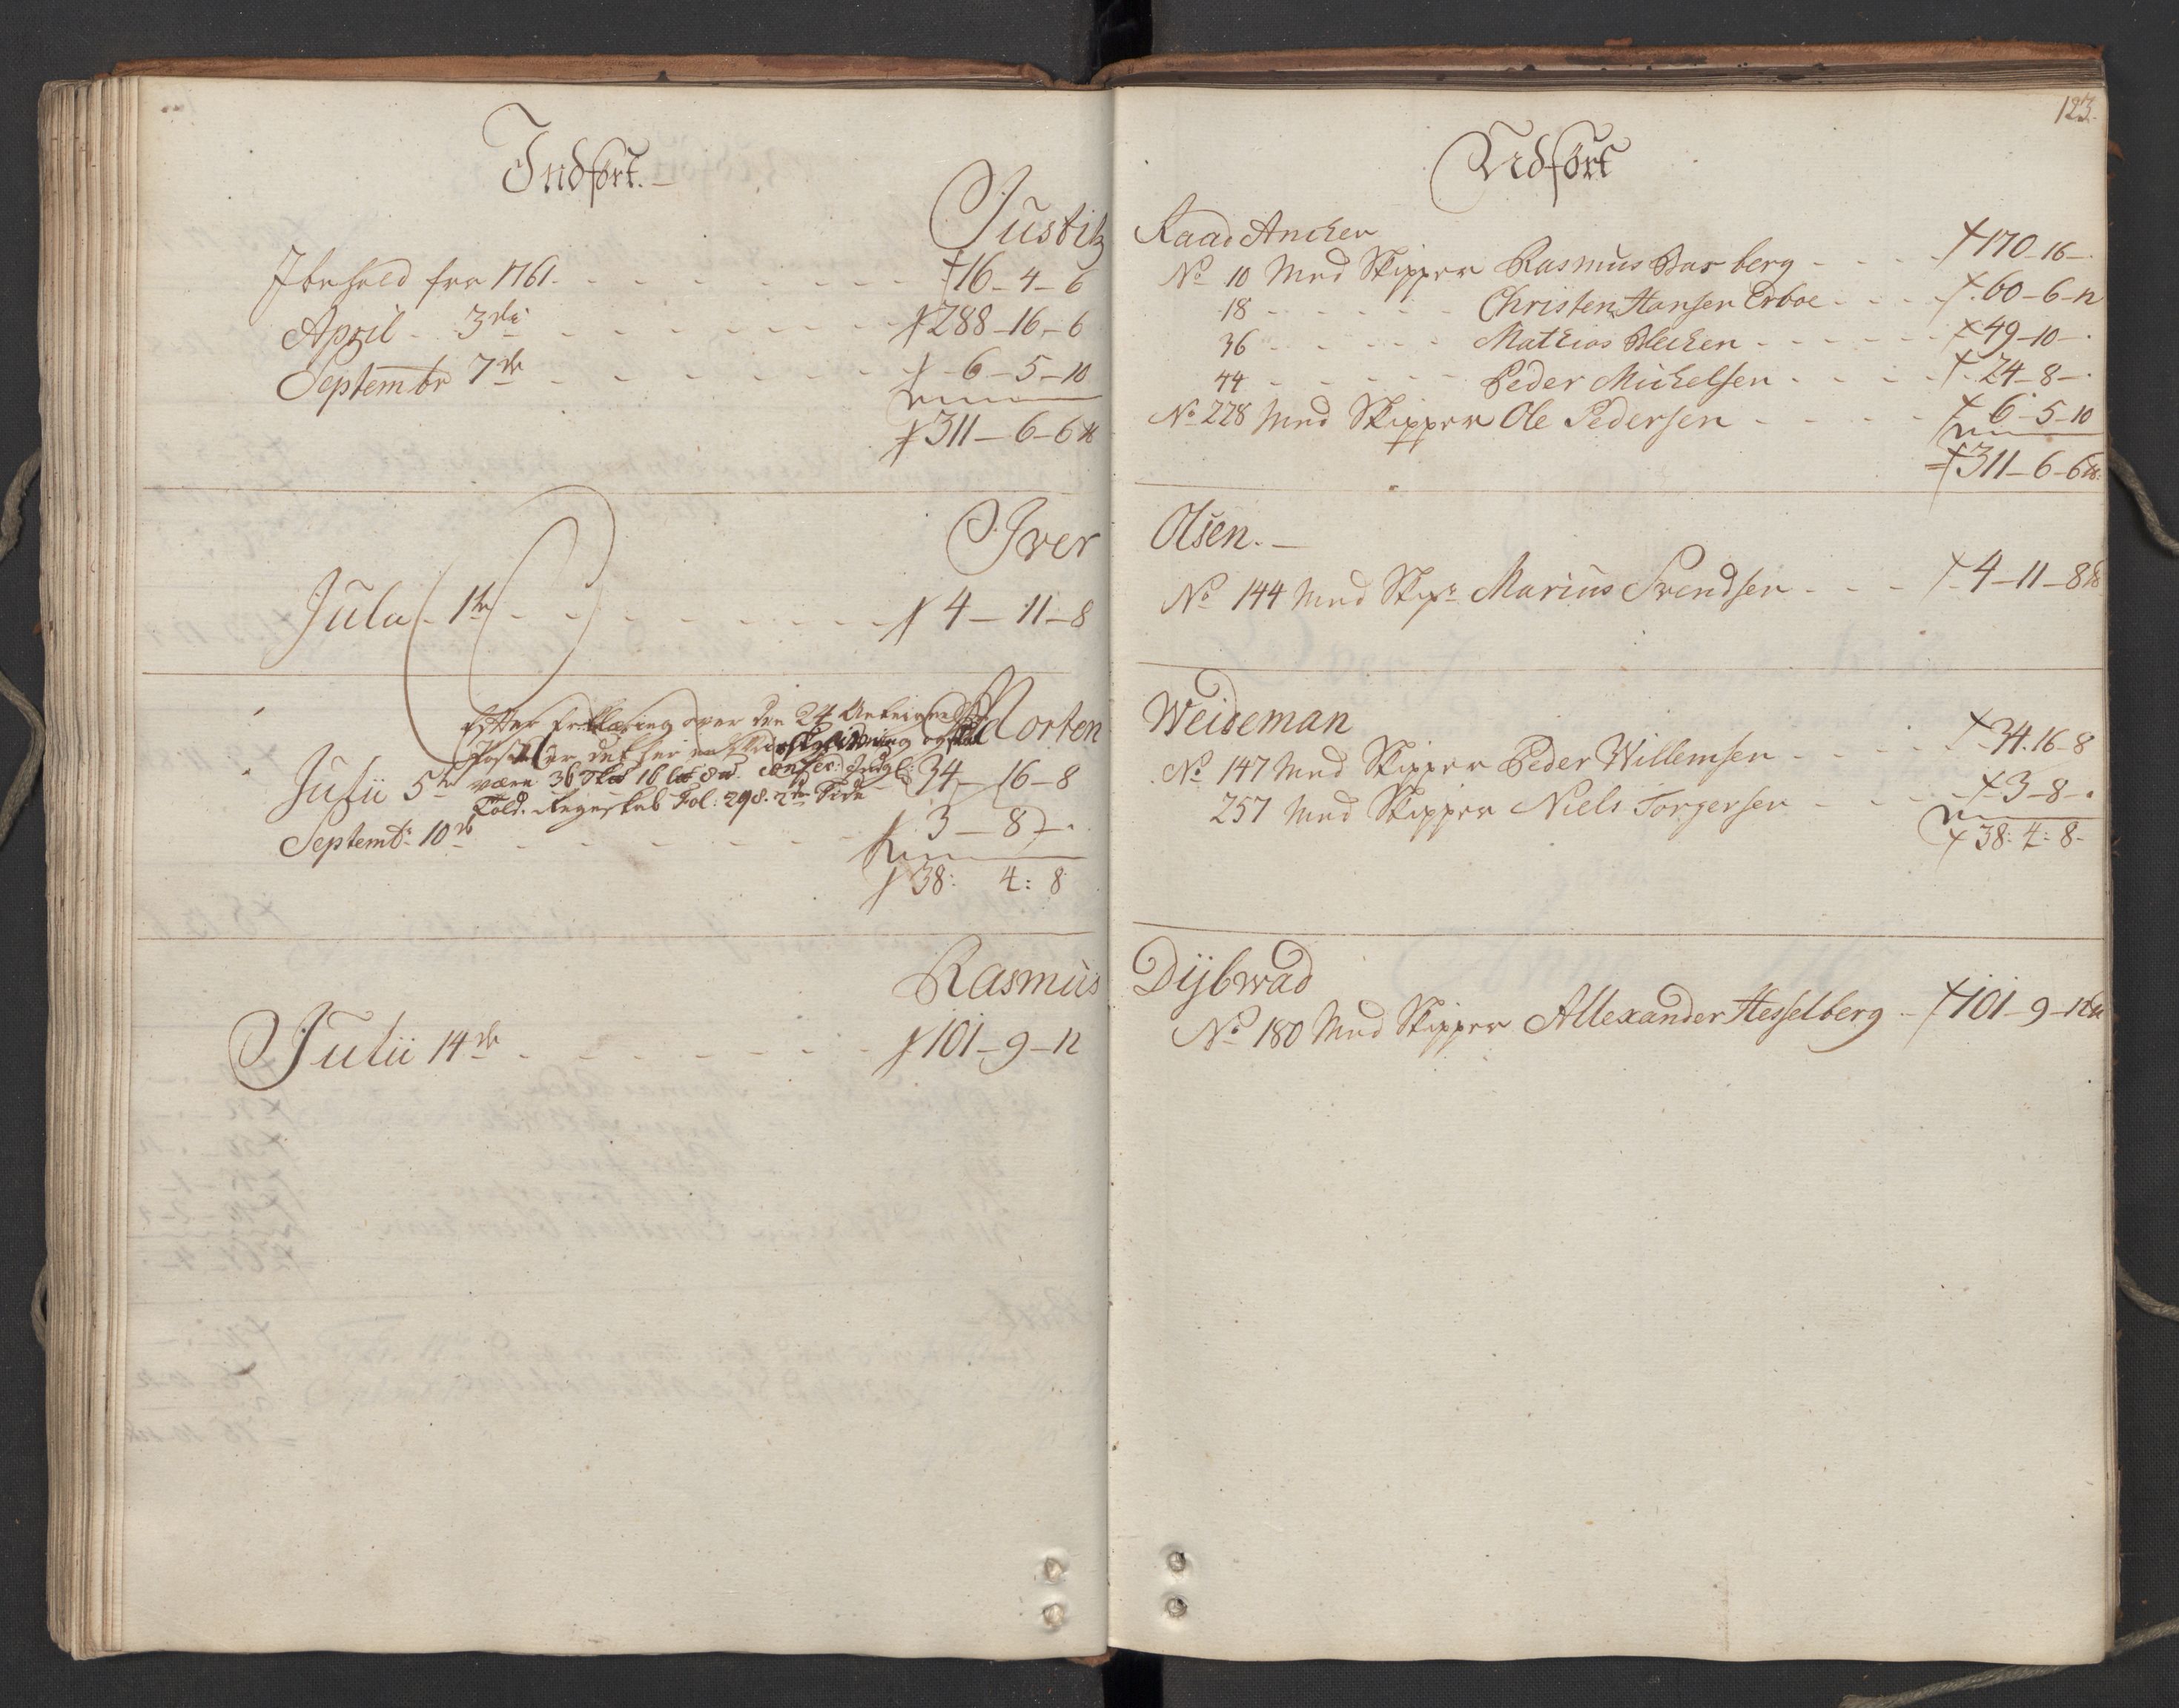 Indført.
Justitz
I behold fra 1761. 16-4-6
April 3de 288-16-6
Septembr 7de 6-5-10
311-6-6 ℔
Iver
Julii 1te 4-11-8
Morten
Efter Forklaring over den 24
Post er det her en og skal
være 36 16 8 confer:
Told-Regnskab Fol: 298. 2den Side
Julii 5te 34-16-8
Septembr 10de 3-8-.
38: 4: 8
Rasmus
Julii 14de 101-9-12
123.
Udført
Raad Ancher
No 10 Med Skipper Rasmus Basberg 170-16-.
18 Christen Hansen Erboe 60-6-12
36 Mathias Becken 49-10-.
44 Peder Michelsen 24-8-.
No 228 Med Skipper Ole Pedersen 6-5-10
311-6-6 ℔
Olsen.
No 144 Med Skipr Marius Svendsen 4-11-8 ℔
Weideman
No 147 Med Skipper Peder Willemsen 34.16-8
257 Med Skipper Niels Torgersen 3-8-.
38: 4: 8-
Dijbwad
No 180 Med Skipper Allexander Hesselberg 101-9-12 ℔